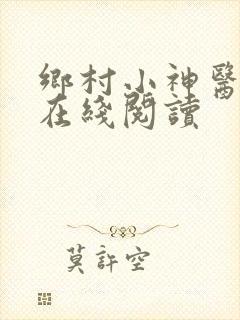 鄉村小神醫
在綫閱讀
莫許空